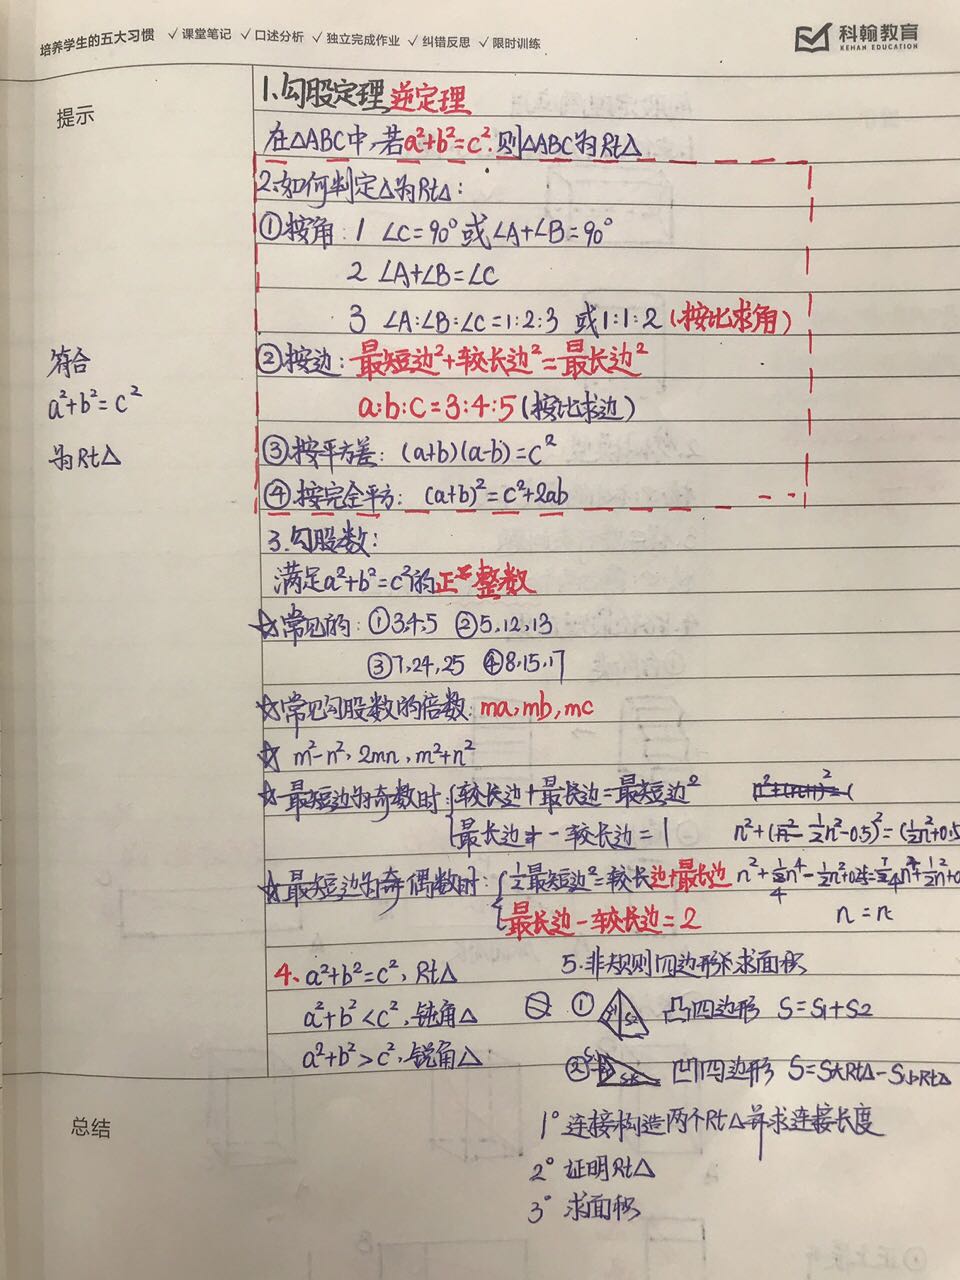 培养学生的五大习惯 ✓课堂笔记 ✓口述分析 ✓独立完成作业 ✓纠错反思 ✓限时训练
科翰教育
KEHAN EDUCATION
提示
1.勾股定理逆定理
在△ABC中,若a²+b²=c².则△ABC为Rt△
2.如何判定△为Rt△:
①按角:1 ∠C=90°或∠A+∠B=90°
2 ∠A+∠B=∠C
3 ∠A:∠B:∠C=1:2:3 或1:1:2(按比求角)
②按边:最短边²+较长边²=最长边²
a:b:c=3:4:5(按比求边)
③按平方差:(a+b)(a-b)=c²
④按完全平方:(a+b)²=c²+2ab
符合
a²+b²=c²
为Rt△
3.勾股数:
满足a²+b²=c²的正整数
☆常见的:①3,4,5 ②5,12,13
③7,24,25 ④8,15,17
☆常见勾股数的倍数:ma,mb,mc
☆ m²-n²,2mn,m²+n²
☆最短边为奇数时:{较长边+最长边=最短边²
最长边-较长边=1 n²+(½n²-0.5)²=(½n²+0.5
☆最短边为偶数时:{½最短边²=较长边+最长边
最长边-较长边=2 n=n
4、a²+b²=c²,Rt△
a²+b²<c²,钝角△
a²+b²>c²,锐角△
5.非规则四边形求面积
① S1 S2 凸四边形 S=S1+S2
② 凹四边形 S=S大Rt△-S小Rt△
1°连接构造两个Rt△并求连接长度
2°证明Rt△
3°求面积
总结